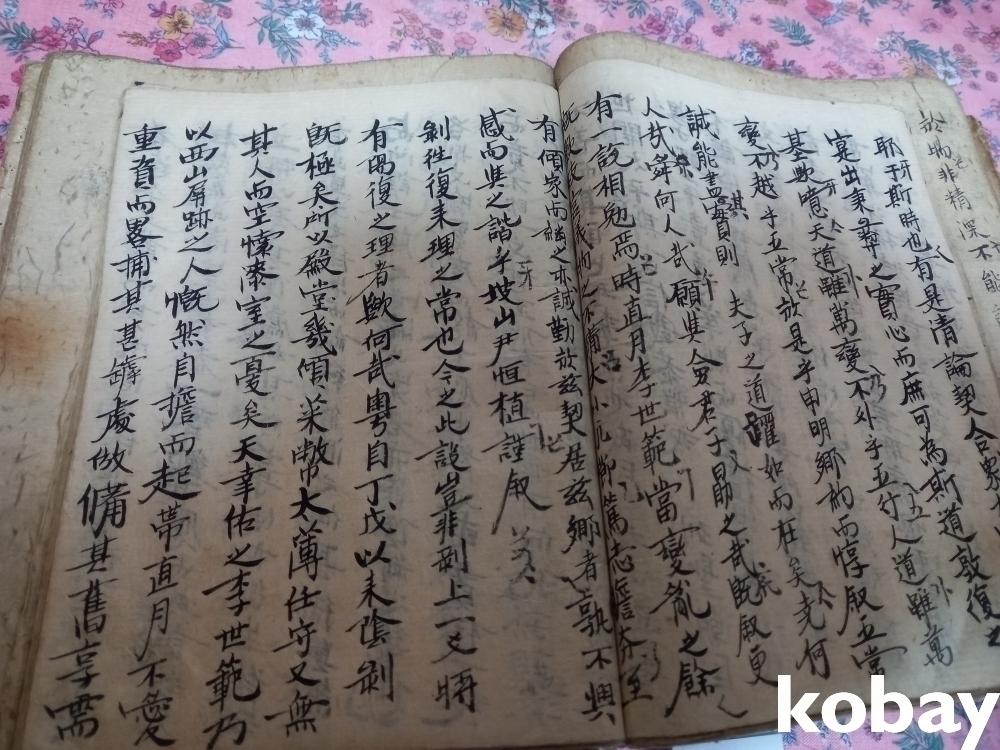 於 非精深不能
耶于斯時也有是淸論契合
寔出秉彛之實心而庶可爲斯道敦復之
基歟噫天道雖萬變不外乎五行人道雖萬
變不越乎五常於是乎申明鄕約而惇叙五常
誠能盡其實則 夫子之道躍如而在矣堯何
人哉舜何人哉願與僉君子勗之哉旣叙更
有一說相勉焉時直月李世範當變亂之餘
大小 篤志 至
有個家而 之亦誠勤於玆契居玆鄕者孰不興
感而與之諧乎坡山尹恒植謹叙
剝往復來理之常也今之此說豈非剝上一爻將
有陽復之理者歟何哉粤自丁戊以來陰剝
旣極矣所以殿堂幾傾菜幣太薄任守又無
其人而空懷漆室之憂矣天幸佑之李世範乃
以西山屛跡之人慨然自擔而起帶直月不愛
重資而畧捕其甚罅處倣備其舊享需
kobay